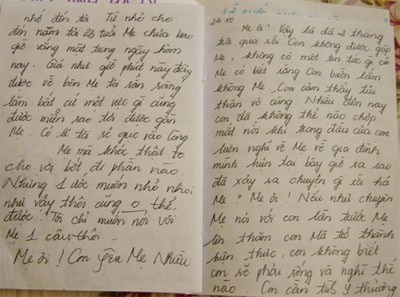 nhớ đến tôi Từ nhỏ cho
đến năm tôi 23 tuổi Mẹ chưa bao
giờ vắng mặt trong ngày hôm
nay. Giá như giờ phút này đây
được về bên Mẹ tôi sẵn sàng
làm bất cứ một việc gì cũng
được miễn sao tôi được gần
Mẹ. Có lẽ tôi sẽ gục vào lòng
Mẹ mà khóc thật to
cho vơi bớt đi phần nào.
Nhưng 1 ước muốn nhỏ nhoi
như vậy thôi cũng o thể
được! Tôi chỉ muốn nói với
Mẹ 1 câu thôi.
Mẹ ời! Con yêu Mẹ Nhiều
24.10
Mẹ ơi! Vậy là đã 2 tháng
trôi qua rồi con không được gặp
Mẹ, không có một tin tức gì cả
Mẹ có biết rằng con buồn lắm
không Mẹ. Con cảm thấy tủi
thân vô cùng. Nhiều đêm nay
con đã không thể nào chợp
mắt nổi khi trong đầu của con
luôn nghĩ về Mẹ về gia đình
mình hiện tại bây giờ ra sao
đã xảy ra chuyện gì rồi hả
Mẹ? Mẹ ơi! Nếu như chuyện
Mẹ nói với con lần trước Mẹ
lên thăm con Mà trở thành
hiện thực. con không biết
con sẽ phải sống và nghĩ thế
nào. Con cần tình yêu thương